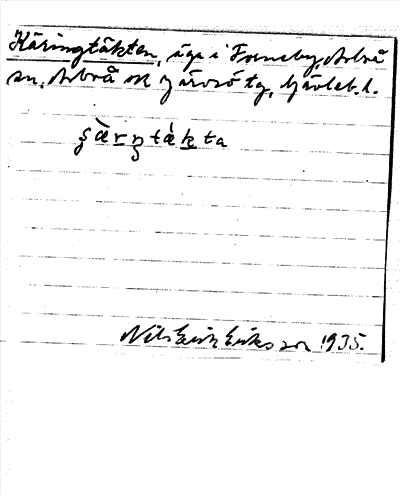 Käringtäkten, äga i Forneby, Arbrå
sn, Arbrå ok Järvsö tg, Gävleb. l.
ʂàrŋtàkta
Nils Erik Eriksson 1935.